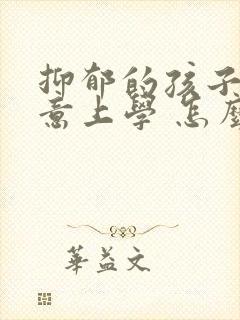 抑郁的孩子
意上學 怎麼
華益文